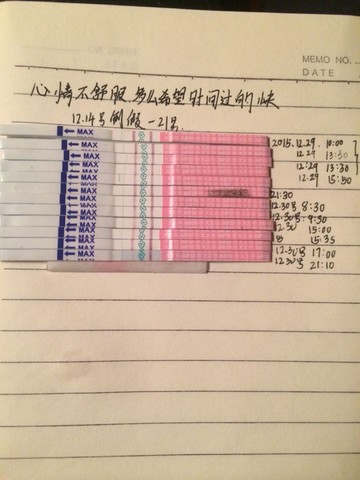 MEMO NO.
DATE
心情不舒服 多么希望时间过的快
12.14号例假-21号.
MAX 2015.12.29. 10:00
MAX 12.29 13:30
MAX 12.29 13:30
MAX 12.29 15:30
MAX
MAX 21:30
MAX 12.30号 8:30
MAX 12.30号 9:30
MAX 12.30 15:00
MAX 15:35
MAX 12.30号 17:00
MAX 12.30号 21:10